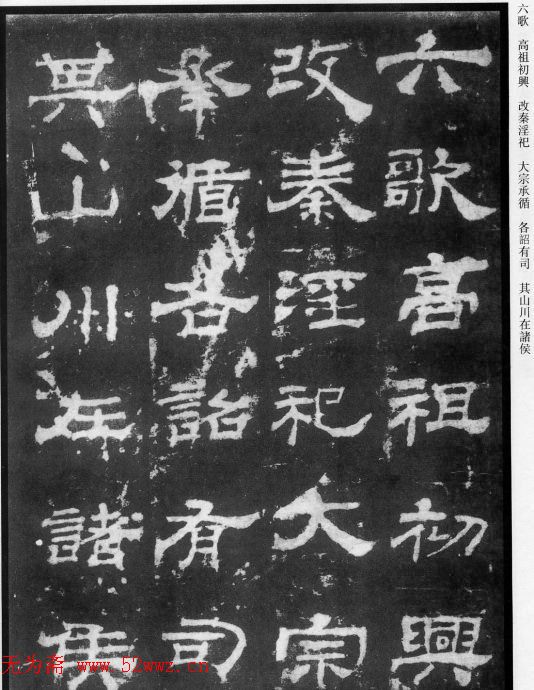 六歌 高祖初興 改秦淫祀 大宗承循 各詔有司 其山川在諸侯
六歌高祖初興
改秦淫祀大宗
承循各詔有司
其山川在諸侯
无为斋 www.52wwz.cn